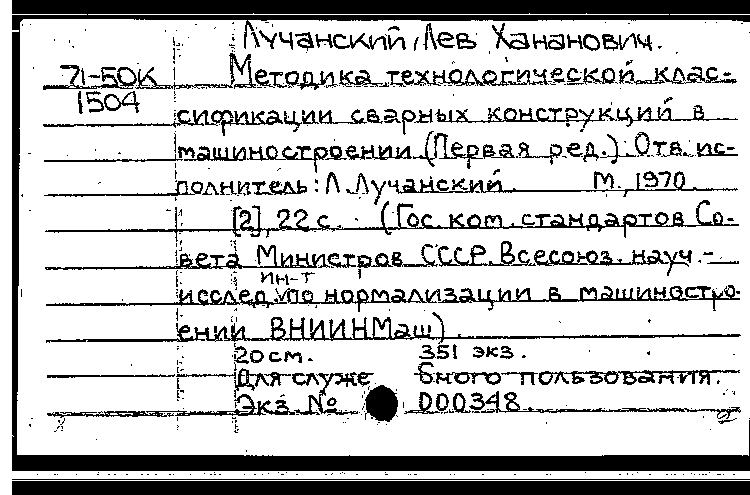 Лучанский, Лев Хананович.
71-50К Методика технологической клас-
1504
сификации сварных конструкций в
машиностроении. (Первая ред.). Отв. ис-
полнитель: Л. Лучанский. М., 1970.
[2], 22 с. (Гос. ком. стандартов Со-
вета Министров СССР. Всесоюз. науч.-
ин-т
исслед. по нормализации в машиностро-
ении ВНИИНМаш).
20 см. 351 экз.
Для служе бного пользования.
Экз. № 000348.